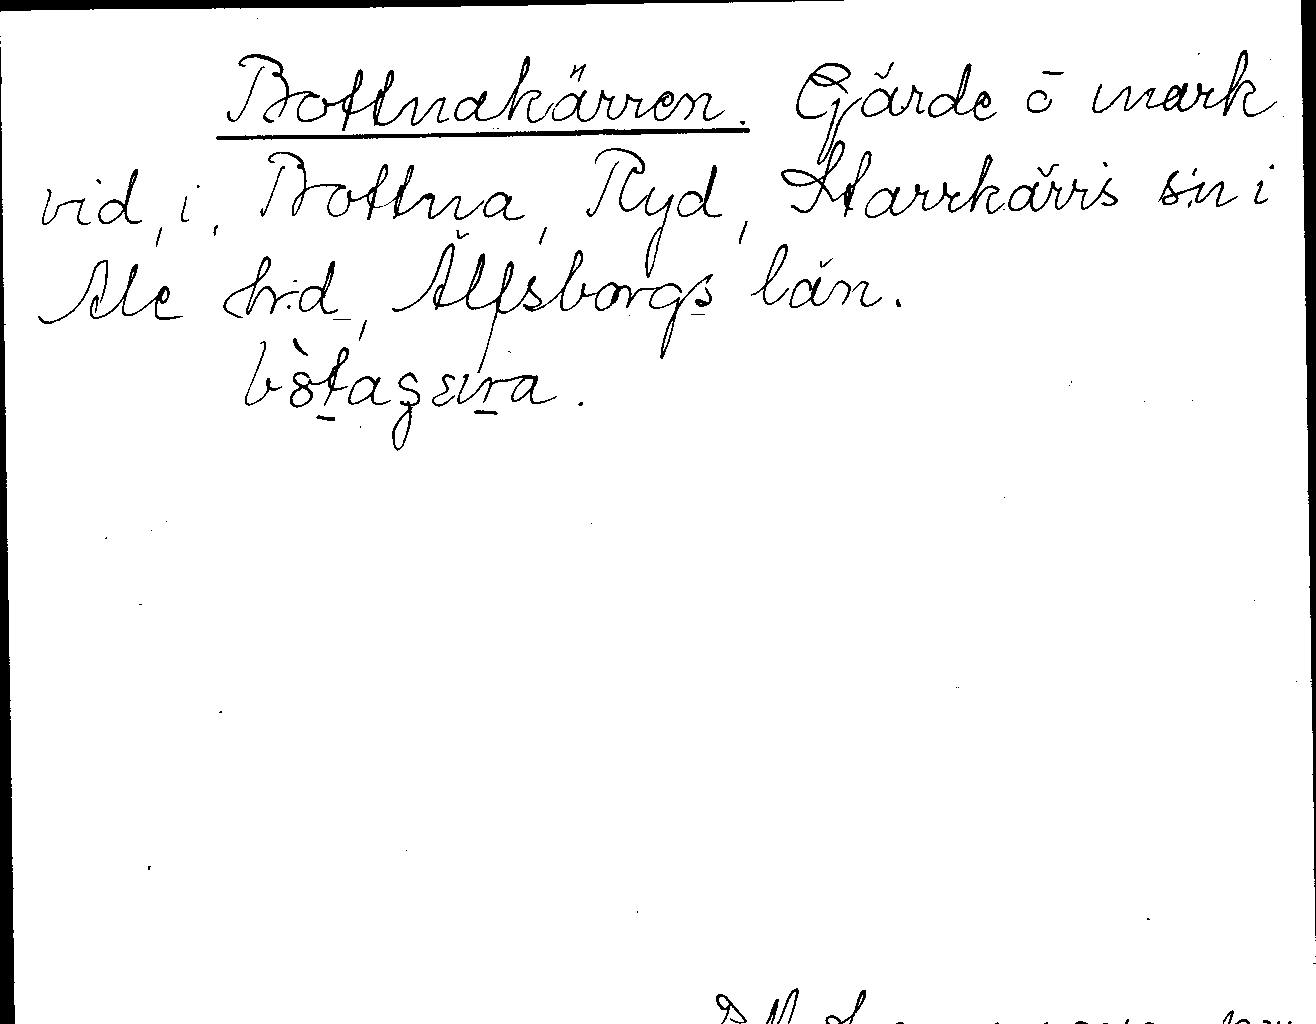 Bottnakärren. Gärde ō mark
vid, i, Bottna, Ryd, Starrkärrs s:n i
Ale hrd, Älfsborgs län.